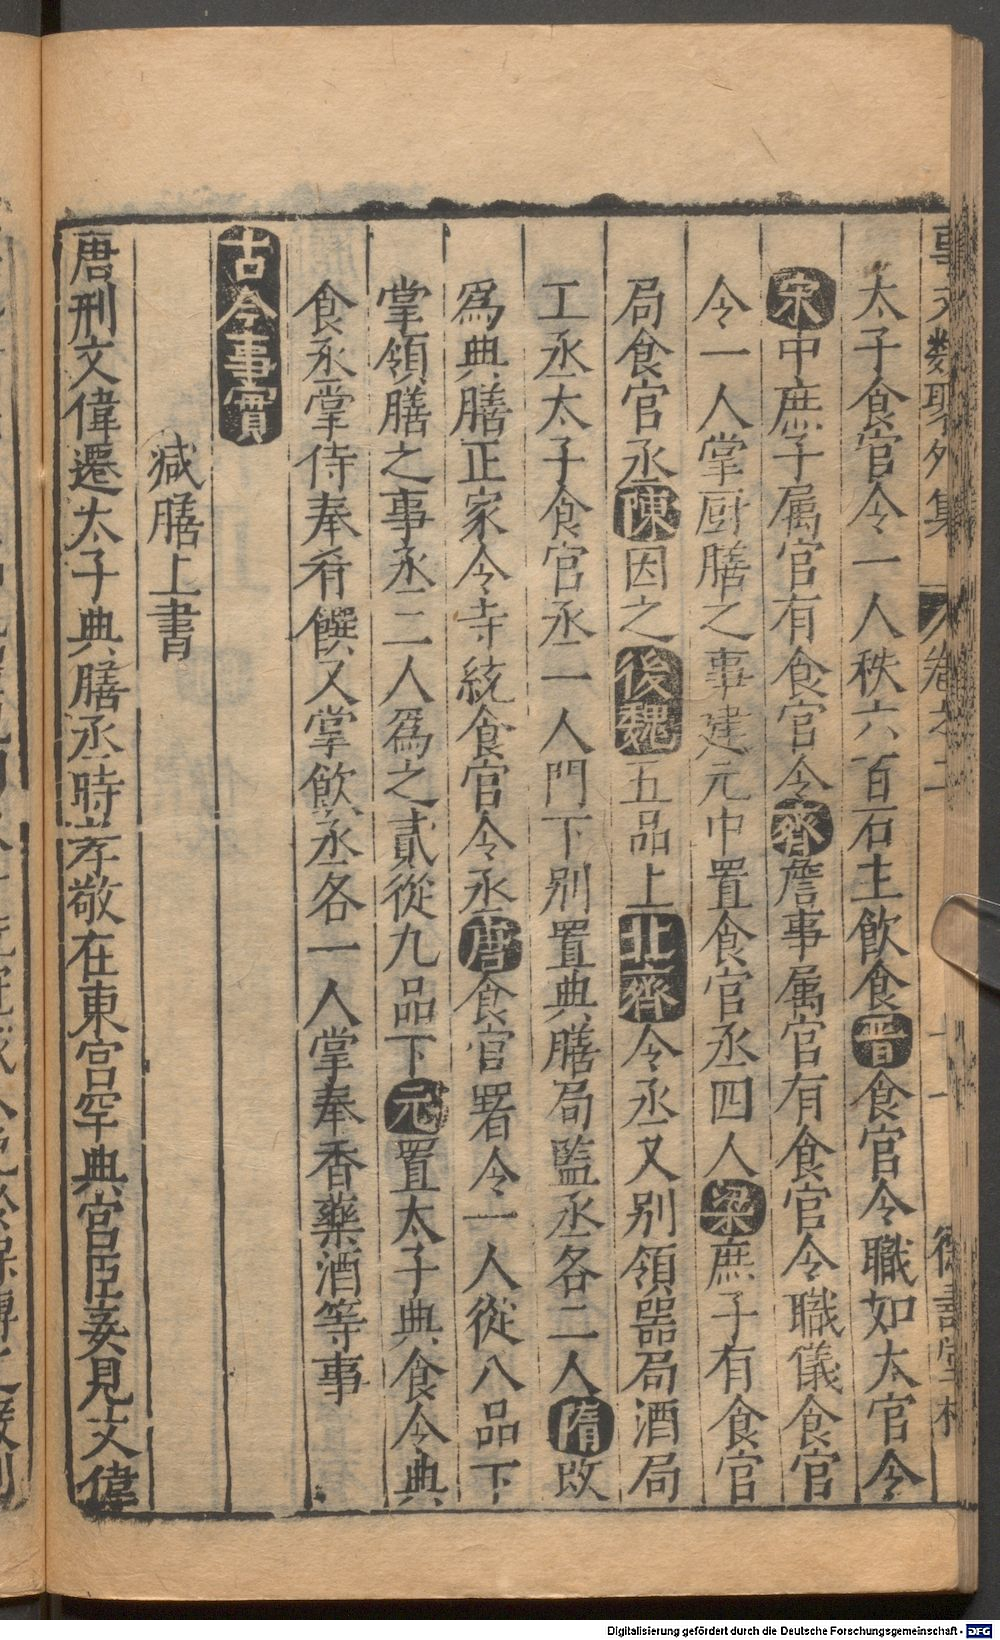 事文類聚外集 卷之二 十一 德壽堂梓
太子食官令一人秩六百石主飲食晋食官令職如太官令
宋中庶子属官有食官令齊詹事属官有食官令職儀食官
令一人掌厨膳之事建元中置食官丞四人梁庶子有食官
局食官丞陳因之後魏五品上北齊令丞又别領噐局酒局
工丞太子食官丞二人門下别置典膳局監丞各二人隋改
爲典膳正家令寺統食官令丞唐食官署令一人從八品下
掌領膳之事丞二人爲之貳從九品下元置太子典食令典
食丞掌侍奉肴饌又掌飲丞各一人掌奉香藥酒等事
古今事實
减膳上書
唐刑文偉遷太子典膳丞時孝敬在東宮罕與宮臣接見文偉
Digitalisierung gefördert durch die Deutsche Forschungsgemeinschaft - DFG